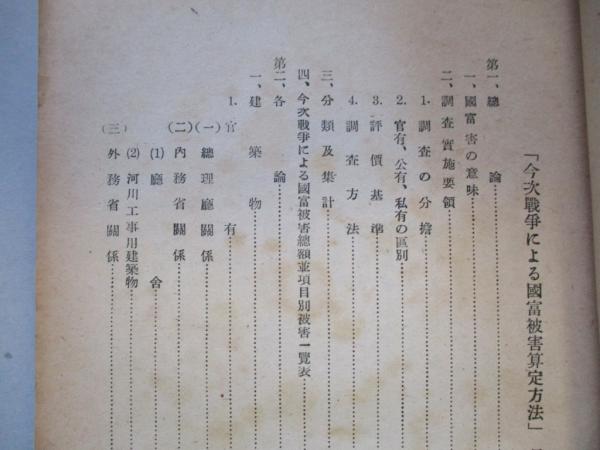 「今次戰爭による國富被害算定方法」
第一、總論
一、國富害の意味
二、調査實施要領
1. 調査の分擔
2. 官有、公有、私有の區別
3. 評價基準
4. 調査方法
三、分類及集計
四、今次戰爭による國富被害總額並項目別被害一覽表
第二、各論
一、建築物
1. 官有
(一) 總理廳關係
(二) 內務省關係
(1) 廳舍
(2) 河川工事用建築物
(三) 外務省關係